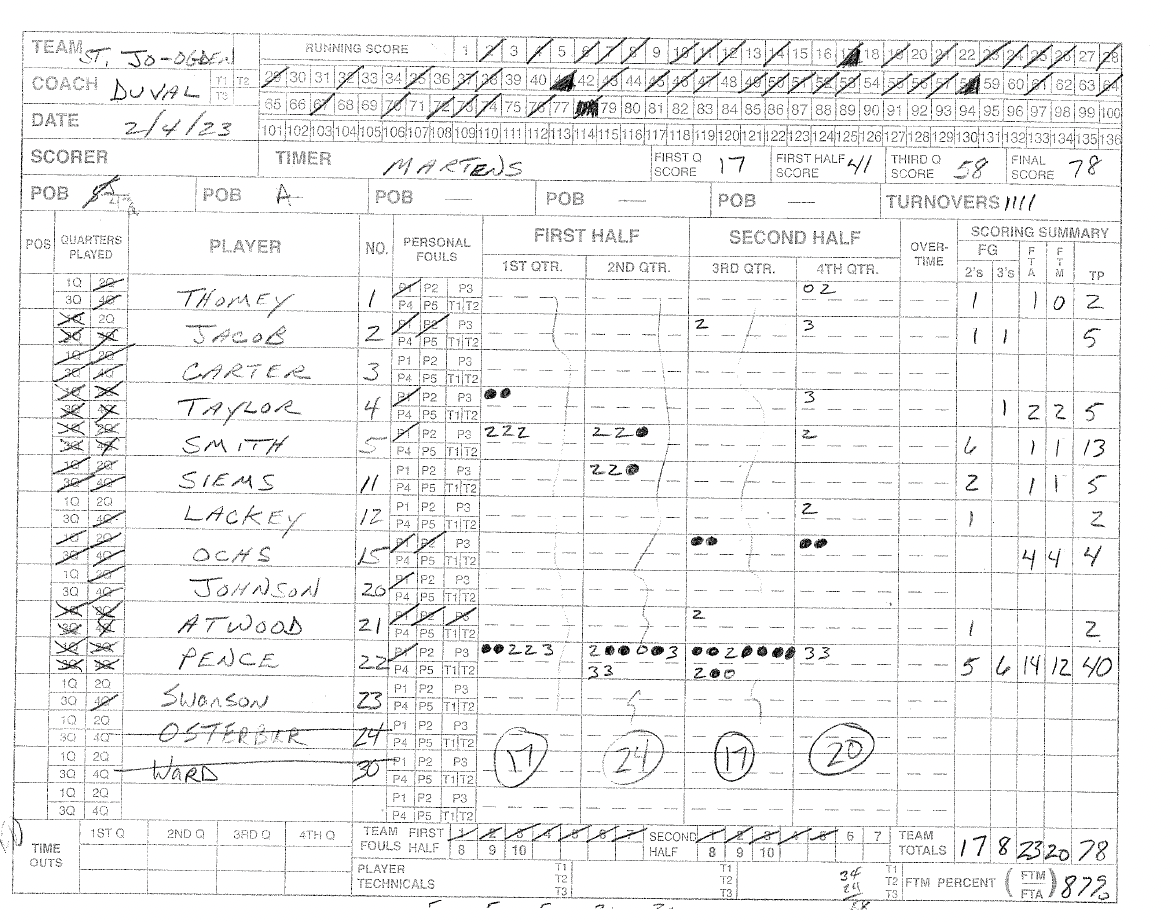 TEAM ST. JO-OGDEN RUNNING SCORE 1 2 3 4 5 6 7 8 9 10 11 12 13 14 15 16 17 18 19 20 21 22 23 24 25 26 27 28
COACH DUVAL T1 T2 T3 29 30 31 32 33 34 35 36 37 38 39 40 41 42 43 44 45 46 47 48 49 50 51 52 53 54 55 56 57 58 59 60 61 62 63 64
65 66 67 68 69 70 71 72 73 74 75 76 77 78 79 80 81 82 83 84 85 86 87 88 89 90 91 92 93 94 95 96 97 98 99 100
DATE 2/4/23 101 102 103 104 105 106 107 108 109 110 111 112 113 114 115 116 117 118 119 120 121 122 123 124 125 126 127 128 129 130 131 132 133 134 135 136
SCORER TIMER MARTENS FIRST Q SCORE 17 FIRST HALF SCORE 41 THIRD Q SCORE 58 FINAL SCORE 78
POB POB A POB — POB — POB — TURNOVERS IIII
POS QUARTERS PLAYED PLAYER NO. PERSONAL FOULS FIRST HALF SECOND HALF OVER-TIME SCORING SUMMARY
1ST QTR. 2ND QTR. 3RD QTR. 4TH QTR. FG 2's 3's FTA FTM TP
1Q 2Q 3Q 4Q THOMEY 1 P1 P2 P3 P4 P5 T1 T2 02 1 1 0 2
1Q 2Q 3Q 4Q JACOB 2 P1 P2 P3 P4 P5 T1 T2 2 3 1 1 5
1Q 2Q 3Q 4Q CARTER 3 P1 P2 P3 P4 P5 T1 T2
1Q 2Q 3Q 4Q TAYLOR 4 P1 P2 P3 P4 P5 T1 T2 ●● 3 1 2 2 5
1Q 2Q 3Q 4Q SMITH 5 P1 P2 P3 P4 P5 T1 T2 222 22● 2 6 1 1 13
1Q 2Q 3Q 4Q SIEMS 11 P1 P2 P3 P4 P5 T1 T2 22● 2 1 1 5
1Q 2Q 3Q 4Q LACKEY 12 P1 P2 P3 P4 P5 T1 T2 2 1 2
1Q 2Q 3Q 4Q OCHS 15 P1 P2 P3 P4 P5 T1 T2 ●● ●● 4 4 4
1Q 2Q 3Q 4Q JOHNSON 20 P1 P2 P3 P4 P5 T1 T2
1Q 2Q 3Q 4Q ATWOOD 21 P1 P2 P3 P4 P5 T1 T2 2 1 2
1Q 2Q 3Q 4Q PENCE 22 P1 P2 P3 P4 P5 T1 T2 ●●223 2●●0●3 ●●20●●● 33 5 6 14 12 40
33 2●0
1Q 2Q 3Q 4Q SWANSON 23 P1 P2 P3 P4 P5 T1 T2
1Q 2Q 3Q 4Q OSTERBUR 24 P1 P2 P3 P4 P5 T1 T2 17 24 17 20
1Q 2Q 3Q 4Q WARD 30 P1 P2 P3 P4 P5 T1 T2
1Q 2Q 3Q 4Q P1 P2 P3 P4 P5 T1 T2
TIME OUTS 1ST Q 2ND Q 3RD Q 4TH Q TEAM FOULS FIRST HALF 1 2 3 4 5 6 7 8 9 10 SECOND HALF 1 2 3 4 5 6 7 8 9 10 TEAM TOTALS 17 8 23 20 78
PLAYER TECHNICALS T1 T2 T3 T1 T2 T3 34 T1 T2 T3 FTM PERCENT (FTM/FTA) 87%